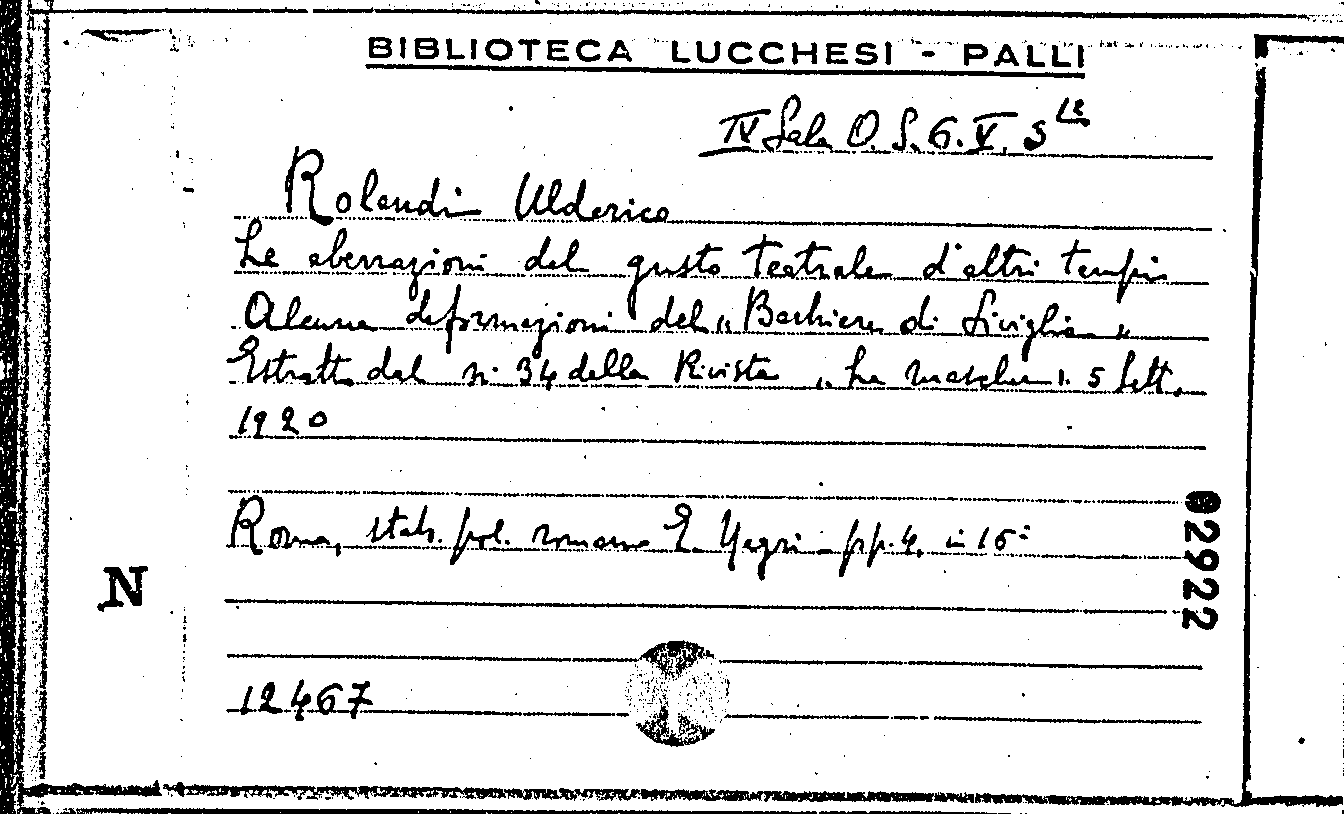 BIBLIOTECA LUCCHESI - PALLI
IV Sala O. S. 6. V. 5 le
Rolandi Ulderico
Le aberrazioni del gusto teatrale d'altri tempi
Alcune deformazioni del „ Barbiere di Siviglia „
Estratto dal n. 34 della Rivista „ La maschera 5 Sett.
1920
Roma, stab. pol. romano E. Negri - pp. 4, in 16°
N
02922
12467